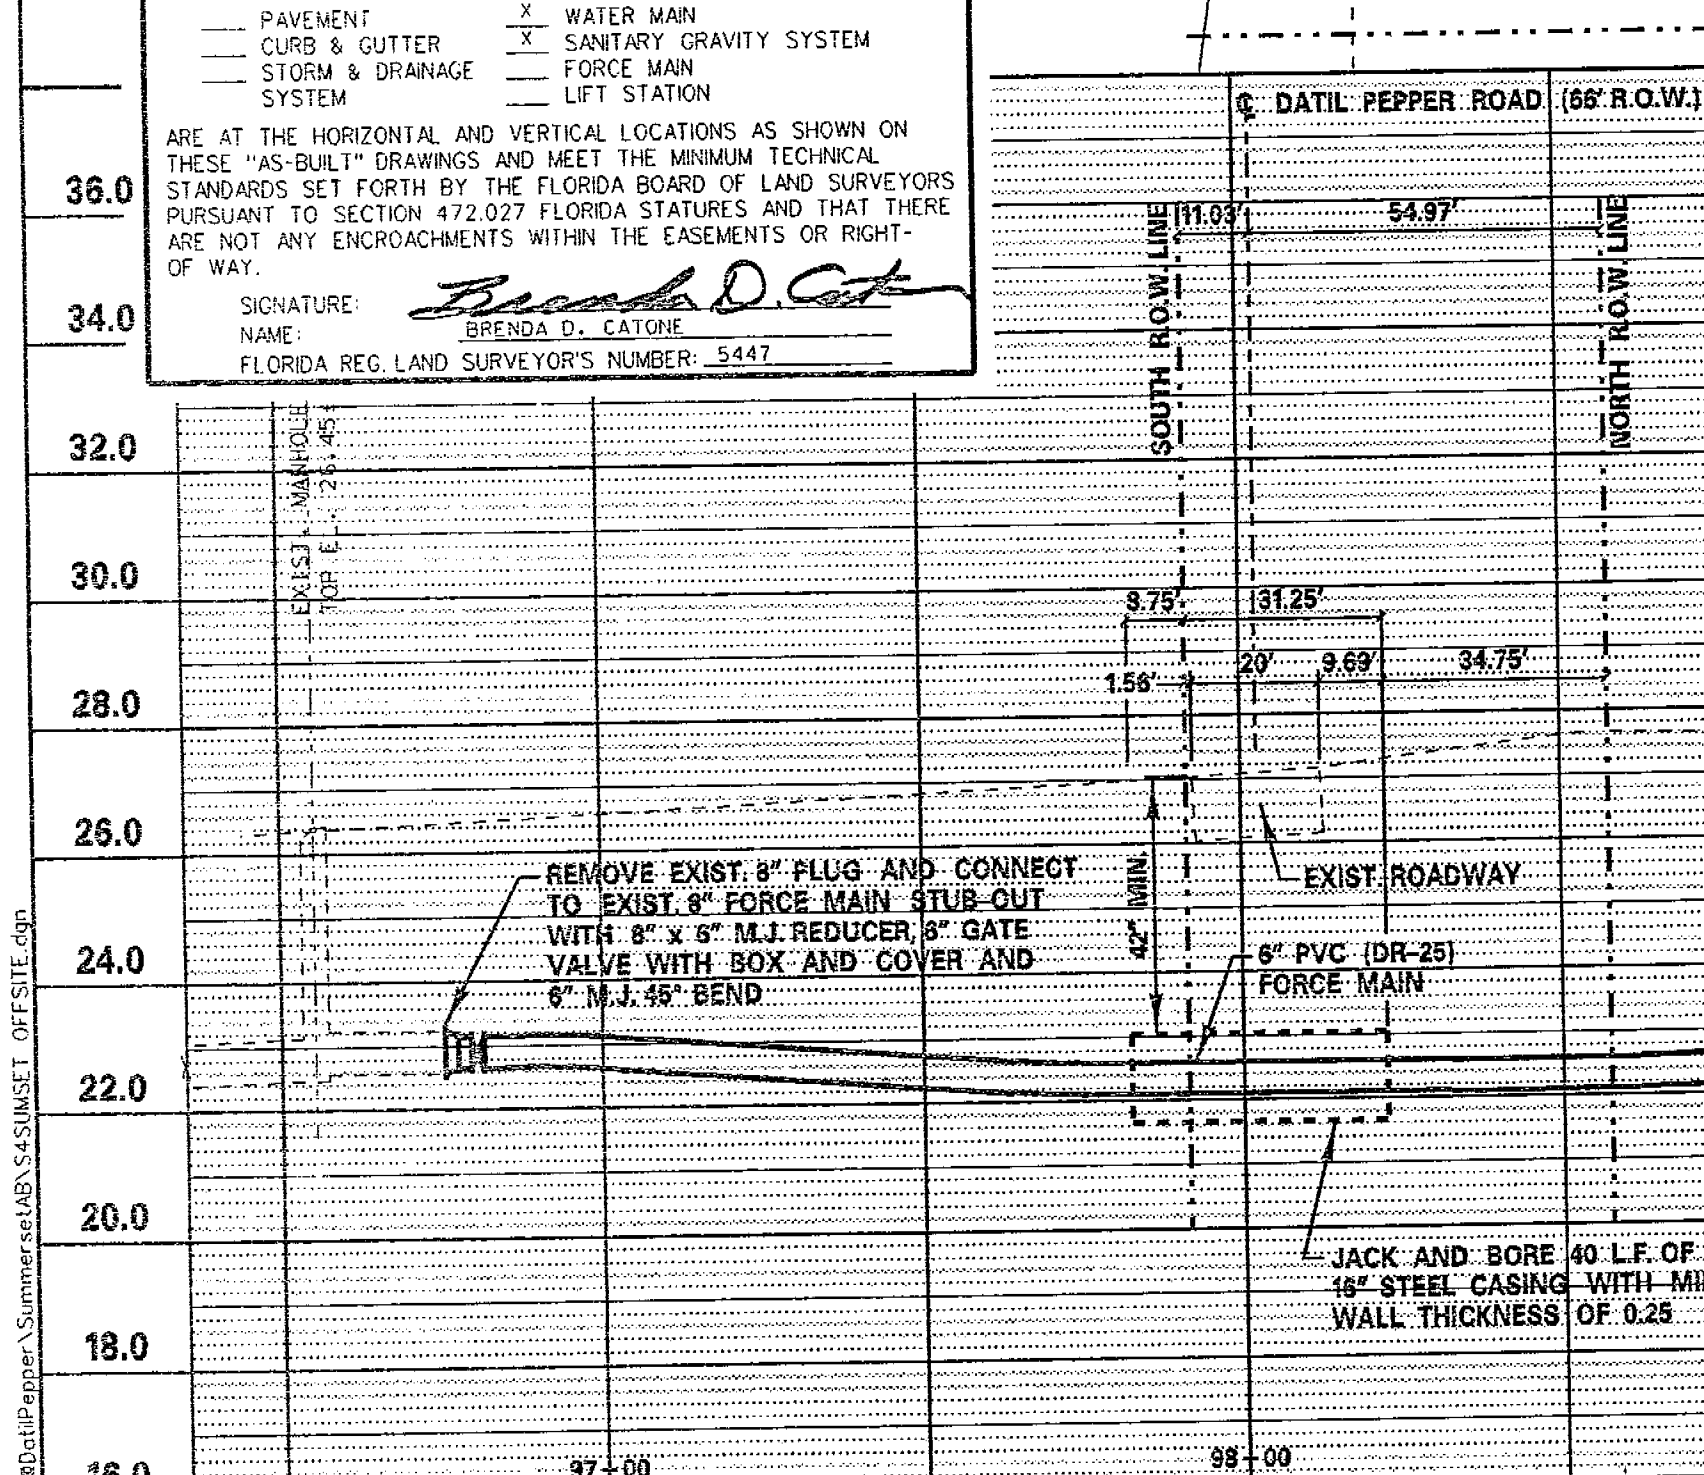 ___ PAVEMENT
___ CURB & GUTTER
___ STORM & DRAINAGE
SYSTEM
X WATER MAIN
X SANITARY GRAVITY SYSTEM
___ FORCE MAIN
___ LIFT STATION
ARE AT THE HORIZONTAL AND VERTICAL LOCATIONS AS SHOWN ON
THESE "AS-BUILT" DRAWINGS AND MEET THE MINIMUM TECHNICAL
STANDARDS SET FORTH BY THE FLORIDA BOARD OF LAND SURVEYORS
PURSUANT TO SECTION 472.027 FLORIDA STATURES AND THAT THERE
ARE NOT ANY ENCROACHMENTS WITHIN THE EASEMENTS OR RIGHT-
OF WAY.
SIGNATURE: Brenda D. Cat
NAME: BRENDA D. CATONE
FLORIDA REG. LAND SURVEYOR'S NUMBER: 5447
℄ DATIL PEPPER ROAD (66' R.O.W.)
11.03' 54.97'
SOUTH R.O.W. LINE
NORTH R.O.W. LINE
36.0
34.0
32.0
30.0
28.0
26.0
24.0
22.0
20.0
18.0
16.0
EXIST. MANHOLE
TOP EL. 26.45
8.75' 31.25'
1.56' 20' 9.69' 34.75'
42" MIN.
EXIST. ROADWAY
REMOVE EXIST. 8" PLUG AND CONNECT
TO EXIST. 8" FORCE MAIN STUB-OUT
WITH 8" x 6" M.J. REDUCER, 6" GATE
VALVE WITH BOX AND COVER AND
6" M.J. 45° BEND
6" PVC (DR-25)
FORCE MAIN
JACK AND BORE 40 L.F. OF
16" STEEL CASING WITH MI
WALL THICKNESS OF 0.25
97+00
98+00
DatilPepper\Summerset\AB\S4SUMSET OFFSITE.dgn